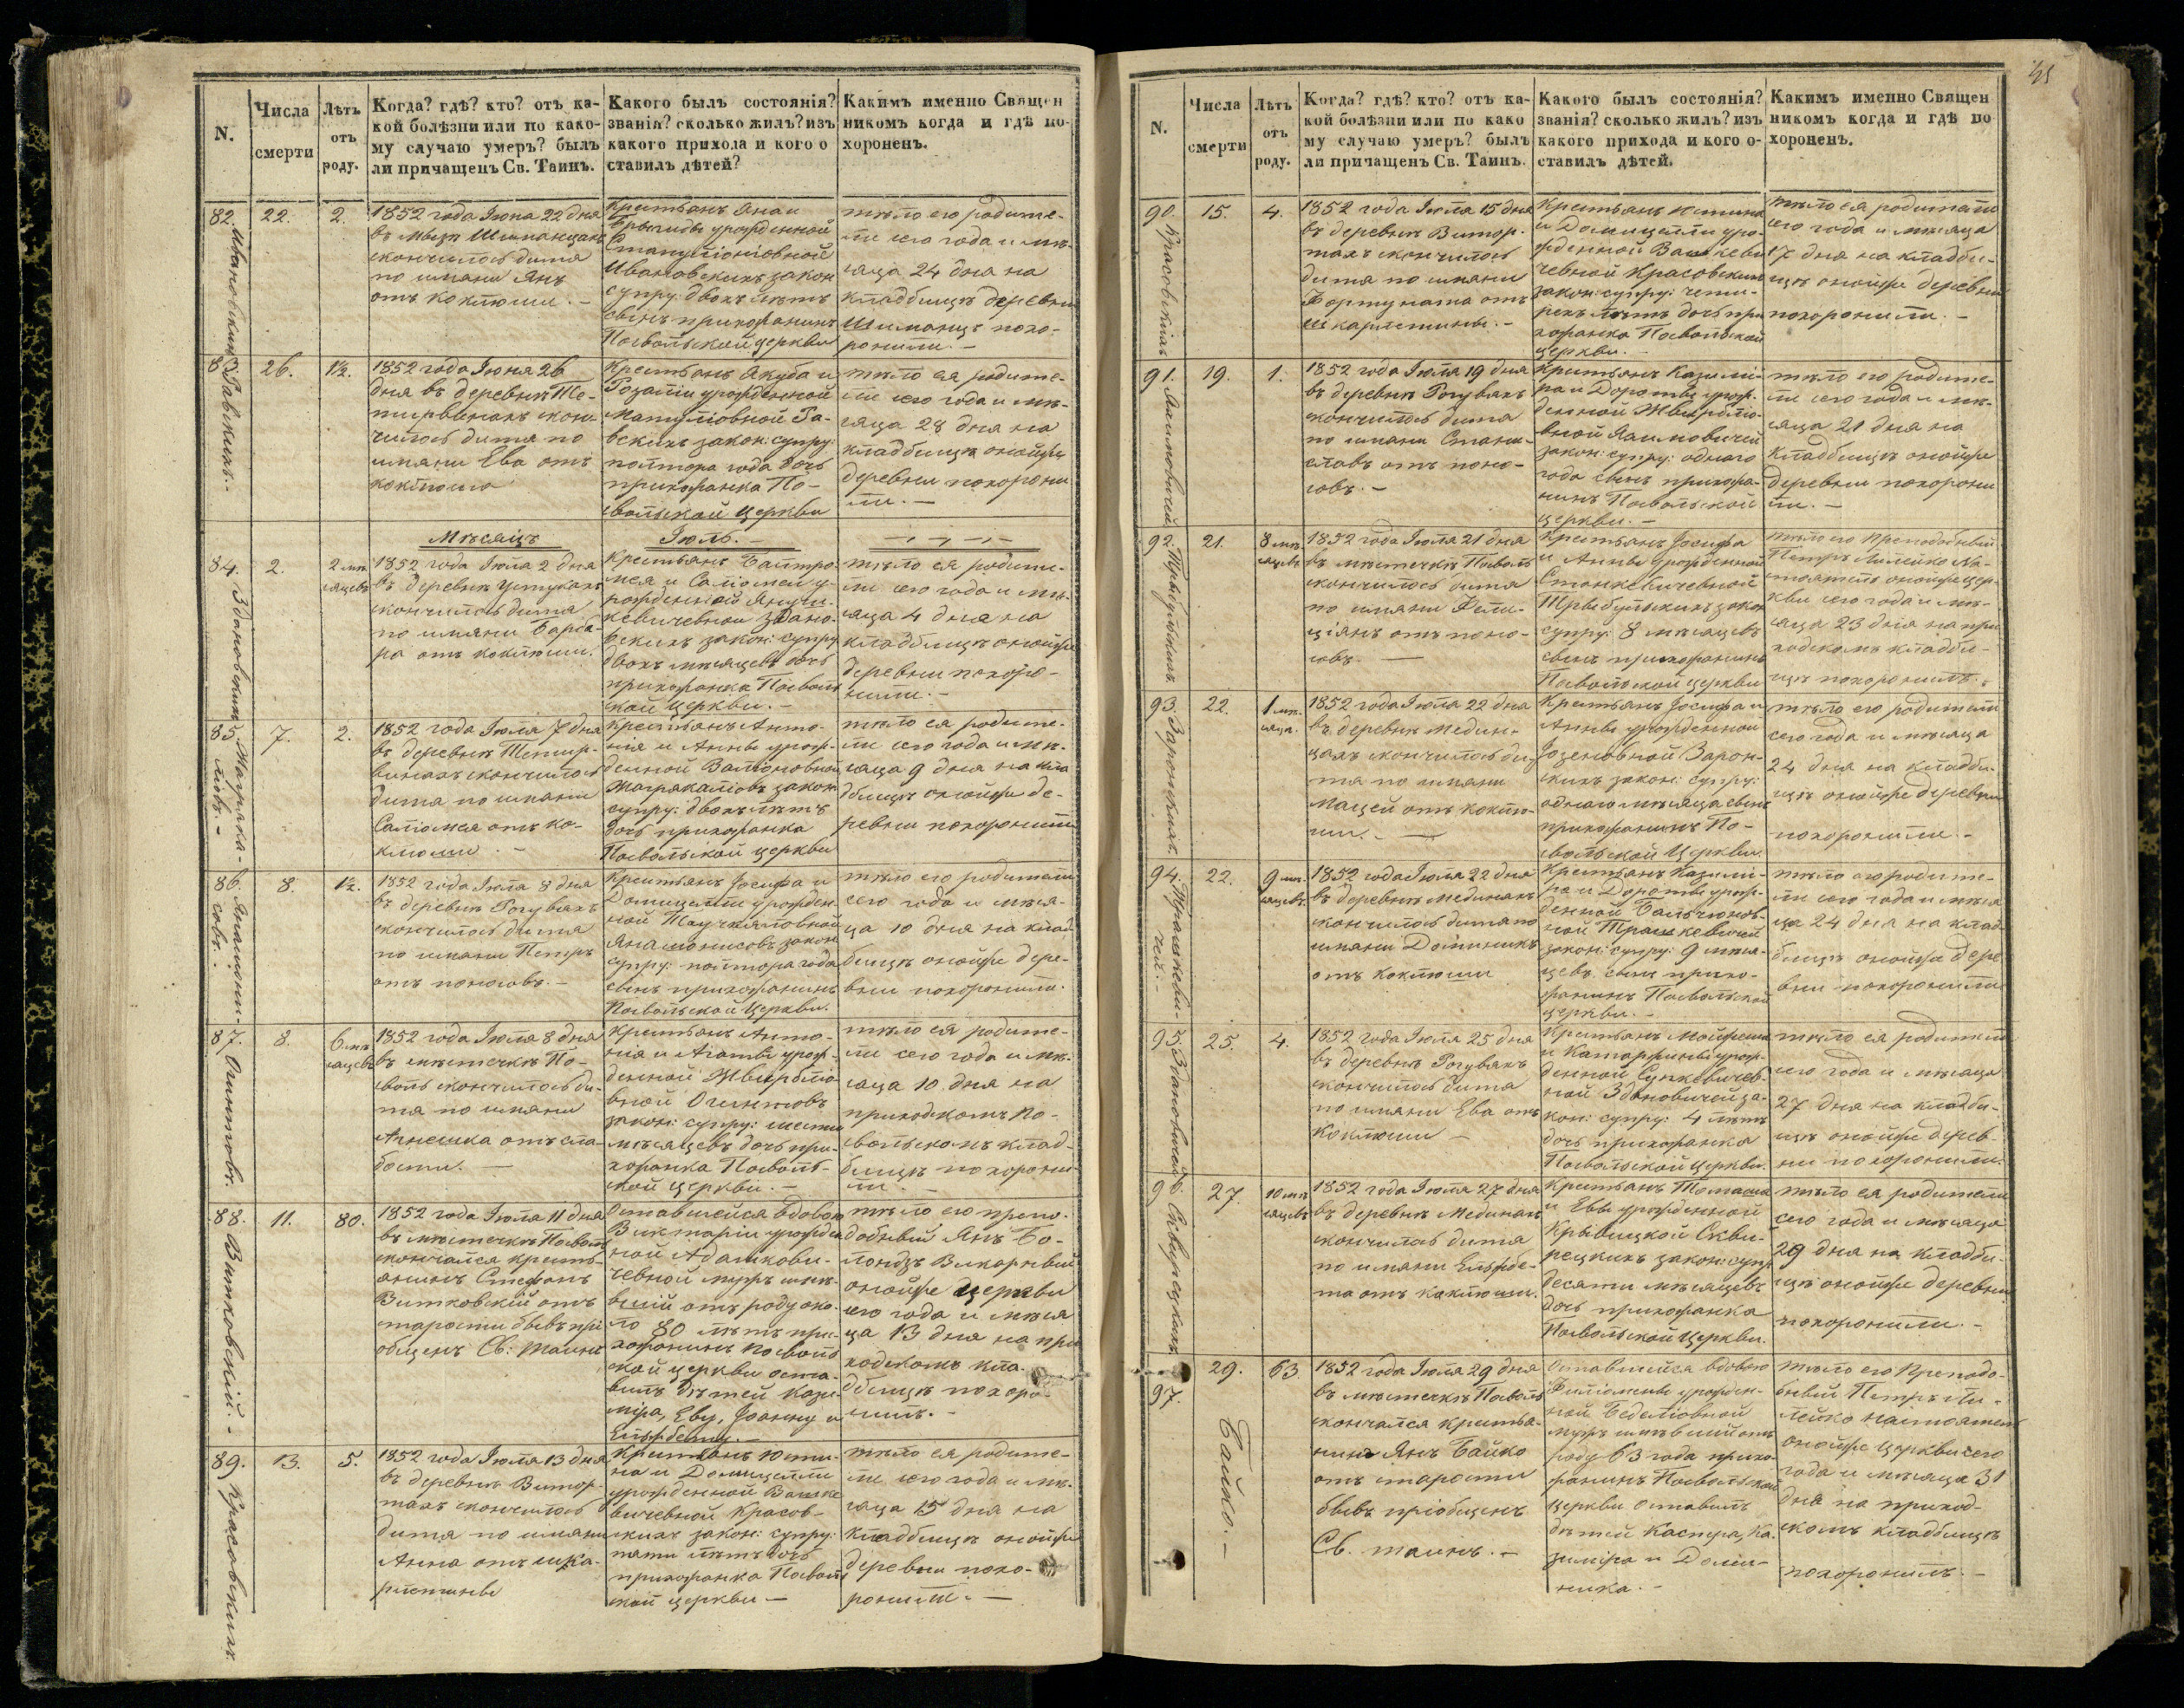 N.
Числа
смерти
Лѣтъ
отъ
роду.
Когда? гдѣ? кто? отъ ка-
кой болѣзни или по како-
му случаю умеръ? былъ
ли причащенъ Св. Таинъ.
Какого былъ состоянія?
званія? сколько жилъ? изъ
какого прихода и кого о
ставилъ дѣтей?
Какимъ именно Священ
никомъ когда и гдѣ по-
хороненъ.
82.
22.
2.
1852 года Іюня 22 дня
скончилось дитя
по имяни Янъ
отъ коклюши. -
Крестьянъ Яна и
урожденной
закон
супру: двохъ лѣтъ
сынъ прихожанинъ
Посвольской церкви
тѣло его родите-
ли сего года и мѣ-
сяца 24 дня на
кладбищѣ деревни
похо-
ронили. -
83.
26.
1½.
1852 года Іюня 26
дня въ деревнѣ Те-
скон-
чилось дитя по
имяни Ева отъ
коклюша
Крестьянъ Якуба и
Розаліи урожденной
закон: супру:
полтора года дочь
прихожанка По-
свольской церкви
тѣло ея родите-
ли сего года и мѣ-
сяца 28 дня на
кладбищѣ онойже
деревни похорони
ли. -
Мѣсяцъ
Іюль. -
84.
2.
2 мѣ
сяцевъ
1852 года Іюля 2 дня
въ деревнѣ
скончилось дитя
по имяни Барба-
ра отъ коклюши.
Крестьянъ Балтро-
мея и Саломеи у-
рожденной Януш-
кевичевной Здано-
вскихъ закон: супру
двохъ мѣсяцевъ дочь
прихожанка Посволь
ской церкви. -
тѣло ея родите-
ли сего года и мѣ-
сяца 4 дня на
кладбищѣ онойже
деревни похоро-
нили. -
85.
7.
2.
1852 года Іюля 7 дня
въ деревнѣ
скончилось
дитя по имяни
Саломея отъ ко-
клюши. -
Крестьянъ Анто-
нія и Анны урож-
денной
закон
супру: двохъ лѣтъ
дочь прихожанка
Посвольской церкви
тѣло ея родите-
ли сего года и мѣ-
сяца 9 дня на кла
дбищѣ онойже де-
ревни похоронили
86.
8.
1½.
1852 года Іюля 8 дня
въ деревнѣ Рогувкахъ
скончилось дитя
по имяни Петръ
отъ поносовъ. -
Крестьянъ Іосифа и
Домицелли урожден-
ной
закон
супру: полтора года
сынъ прихожанинъ
Посвольской церкви.
тѣло его родители
сего года и мѣся-
ца 10 дня на клад
бищѣ онойже дере-
вни похоронили.
87.
8.
6 мѣ
сяцевъ
1852 года Іюля 8 дня
въ мѣстечкѣ По-
сволѣ скончилось ди-
тя по имяни
Агнешка отъ сла-
бости. -
Крестьянъ Анто-
нія и Агаты урож-
денной Жвирбліо-
вной Огинтовъ
закон: супру: шести
мѣсяцевъ дочь при-
хожанка Посволь-
ской церкви. -
тѣло ея родите-
ли сего года и мѣ-
сяца 10 дня на
приходскомъ По-
свольскомъ клад-
бищѣ похорони-
ли.
Огинтовъ.
88.
11.
80.
1852 года Іюля 11 дня
въ мѣстечкѣ Посволѣ
скончался кресть-
янинъ Стефанъ
Витковскій отъ
старости бывъ прі
общенъ Св: таинъ
Оставшейся вдовою
Викторіи урожден
ной Адамкови-
чевной мужъ имѣ-
вшій отъ роду око-
ло 80 лѣтъ при-
хожанинъ Посволь
ской церкви оста-
вилъ дѣтей Кази-
міра, Еву, Іоанну и
Ельжбету. -
тѣло его препо-
добный Янъ Бо-
Викарный
онойже церкви
сего года и мѣся
ца 13 дня на при
ходскомъ кла-
дбищѣ похоро-
нилъ. -
Витковскій. -
89.
13.
5.
1852 года Іюля 13 дня
въ деревнѣ Витар-
тахъ скончилось
дитя по имяни
Анна отъ шка-
рлятины
Крестьянъ Юсти-
на и Домицелли
урожденной Вашке
вичевной Красов-
скихъ закон: супру:
пяти лѣтъ дочь
прихожанка Посволь
ской церкви -
тѣло ея родите-
ли сего года и мѣ-
сяца 15 дня на
кладбищѣ онойже
деревни похо-
ронили. -
Красовскихъ.
45
N.
Числа
смерти
Лѣтъ
отъ
роду.
Когда? гдѣ? кто? отъ ка-
кой болѣзни или по како
му случаю умеръ? былъ
ли причащенъ Св. Таинъ.
Какого былъ состоянія?
званія? сколько жилъ? изъ
какого прихода и кого о-
ставилъ дѣтей.
Какимъ именно Священ
никомъ когда и гдѣ по
хороненъ.
90.
15.
4.
1852 года Іюля 15 дня
въ деревнѣ Витар-
тахъ скончилось
дитя по имяни
Фортуната отъ
шкарлятины. -
Крестьянъ Юстина
и Домицелли уро-
жденной Вашкеви
чевной Красовскихъ
закон: супру: чети-
рехъ лѣтъ дочь при
хожанка Посвольской
церкви. -
тѣло ея родители
сего года и мѣсяца
17 дня на кладби-
щѣ онойже деревни
похоронили. -
Красовскихъ
91.
19.
1.
1852 года Іюля 19 дня
въ деревнѣ Рогувкахъ
скончилось дитя
по имяни Стани-
славъ отъ поно-
совъ. -
Крестьянъ Казимі-
ра и Дороты урож-
денной Жвирбліо-
вной
закон: супру: одного
года сынъ прихожа-
нинъ Посвольской
церкви. -
тѣло его родите-
ли сего года и мѣ-
сяца 21 дня на
кладбищѣ онойже
деревни похорони
ли. -
92.
21.
8 мѣ
сяцевъ
1852 года Іюля 21 дня
въ мѣстечкѣ Посволѣ
скончилось дитя
по имяни Фели-
ціянъ отъ поно-
совъ. -
Крестьянъ Іосифа
и Анны урожденной
Станкевичевной
закон
супру: 8 мѣсяцевъ
сынъ прихожанинъ
Посвольской церкви
тѣло его Преподобный
Петръ Лилейко На-
стоятель онойже цер-
кви сего года и мѣ-
сяца 23 дня на при
ходскомъ кладби-
щѣ похоронилъ. -
93.
22.
1 мѣ-
сяца.
1852 года Іюля 22 дня
въ деревнѣ Медин-
цахъ скончилось ди-
тя по имяни
Мацей отъ коклю-
ши. -
Крестьянъ Іосифа и
Анны урожденной
Зарон-
скихъ закон: супру:
одного мѣсяца сынъ
прихожанинъ По-
свольской Церкви.
тѣло его родители
сего года и мѣсяца
24 дня на кладби-
щѣ онойже деревни
похоронили. -
Заронскихъ.
94.
22.
9 мѣ-
сяцевъ.
1852 года Іюля 22 дня
въ деревнѣ Мединахъ
скончилось дитя по
имяни Доминикъ
отъ коклюши
Крестьянъ Казимі-
ра и Дороты урож-
денной Бальчюнов-
ной Трашкевичей
закон: супру: 9 мѣся-
цевъ сынъ прихо-
жанинъ Посвольской
церкви. -
тѣло его родите-
ли сего года и мѣся
ца 24 дня на клад-
бищѣ онойже дере
вни похоронили
Трашкеви-
чей. -
95.
25.
4.
1852 года Іюля 25 дня
въ деревнѣ Рогувкахъ
скончилось дитя
по имяни Ева отъ
коклюши -
Крестьянъ
и Катаржины урож-
денной Сункевичев-
ной Здановичей за-
кон: супру: 4 лѣтъ
дочь прихожанка
Посвольской церкви.
тѣло ея родители
сего года и мѣсяца
27 дня на кладби-
щѣ онойже дерев-
ни похоронили.
Здановичей
96.
27.
10 мѣ
сяцевъ
1852 года Іюля 27 дня
въ деревнѣ Мединахъ
скончилось дитя
по имяни Ельжбе-
та отъ коклюши.
Крестьянъ Томаша
и Евы урожденной
Крывицкой Скви-
рецкихъ закон: супру
десяти мѣсяцевъ
дочь прихожанка
Посвольской Церкви.
тѣло ея родители
сего года и мѣсяца
29 дня на кладби-
щѣ онойже деревни
похоронили. -
Сквирецкихъ
97.
29.
63.
1852 года Іюля 29 дня
въ мѣстечкѣ Посволѣ
скончался крестья-
нинъ Янъ Байко
отъ старости
бывъ пріобщенъ
Св. таинъ. -
Оставшейся вдовою
Филомены урожден-
ной
мужъ имѣвшій отъ
роду 63 года прихо-
жанинъ Посвольской
церкви оставилъ
дѣтей Каспера, Ка-
зиміра и Доми-
ника. -
тѣло его Преподо-
бный Петръ Ли-
лейко настоятель
онойже церкви сего
года и мѣсяца 31
дня на приход-
скомъ кладбищѣ
похоронилъ. -
Байко. -